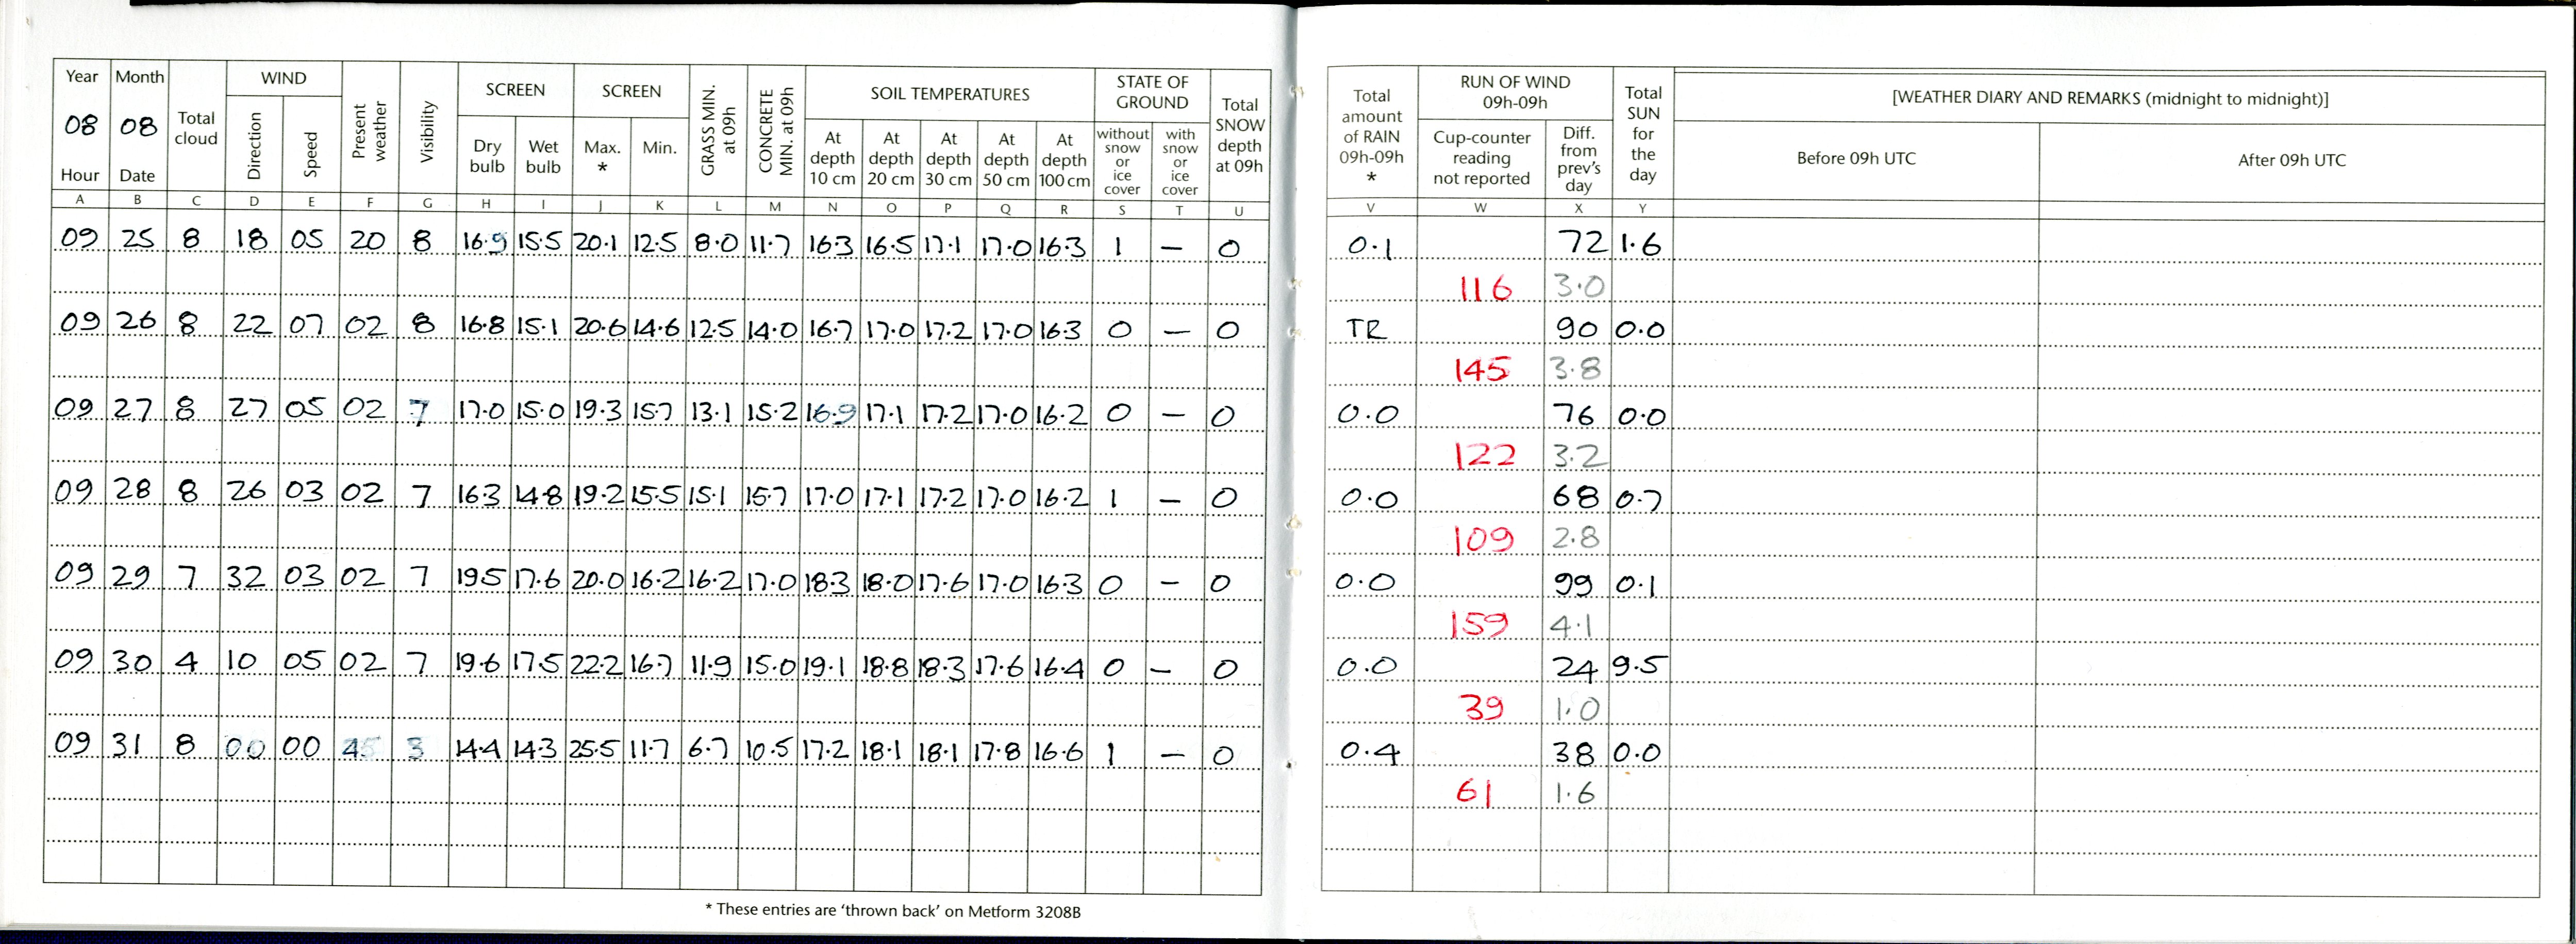 Year Month Total cloud WIND Present weather Visibility SCREEN SCREEN GRASS MIN. at 09h CONCRETE MIN. at 09h SOIL TEMPERATURES STATE OF GROUND Total SNOW depth at 09h
08 08
Hour Date Direction Speed Dry bulb Wet bulb Max. * Min. At depth 10 cm At depth 20 cm At depth 30 cm At depth 50 cm At depth 100 cm without snow or ice cover with snow or ice cover
A B C D E F G H I J K L M N O P Q R S T U
09 25 8 18 05 20 8 16.9 15.5 20.1 12.5 8.0 11.7 16.3 16.5 17.1 17.0 16.3 1 — 0
09 26 8 22 07 02 8 16.8 15.1 20.6 14.6 12.5 14.0 16.7 17.0 17.2 17.0 16.3 0 — 0
09 27 8 27 05 02 7 17.0 15.0 19.3 15.7 13.1 15.2 16.9 17.1 17.2 17.0 16.2 0 — 0
09 28 8 26 03 02 7 16.3 14.8 19.2 15.5 15.1 15.7 17.0 17.1 17.2 17.0 16.2 1 — 0
09 29 7 32 03 02 7 19.5 17.6 20.0 16.2 16.2 17.0 18.3 18.0 17.6 17.0 16.3 0 — 0
09 30 4 10 05 02 7 19.6 17.5 22.2 16.7 11.9 15.0 19.1 18.8 18.3 17.6 16.4 0 — 0
09 31 8 00 00 45 3 14.4 14.3 25.5 11.7 6.7 10.5 17.2 18.1 18.1 17.8 16.6 1 — 0
* These entries are 'thrown back' on Metform 3208B
Total amount of RAIN 09h-09h * RUN OF WIND 09h-09h Total SUN for the day [WEATHER DIARY AND REMARKS (midnight to midnight)]
Cup-counter reading not reported Diff. from prev's day Before 09h UTC After 09h UTC
V W X Y
0.1 72 1.6
116 3.0
TR 90 0.0
145 3.8
0.0 76 0.0
122 3.2
0.0 68 0.7
109 2.8
0.0 99 0.1
159 4.1
0.0 24 9.5
39 1.0
0.4 38 0.0
61 1.6